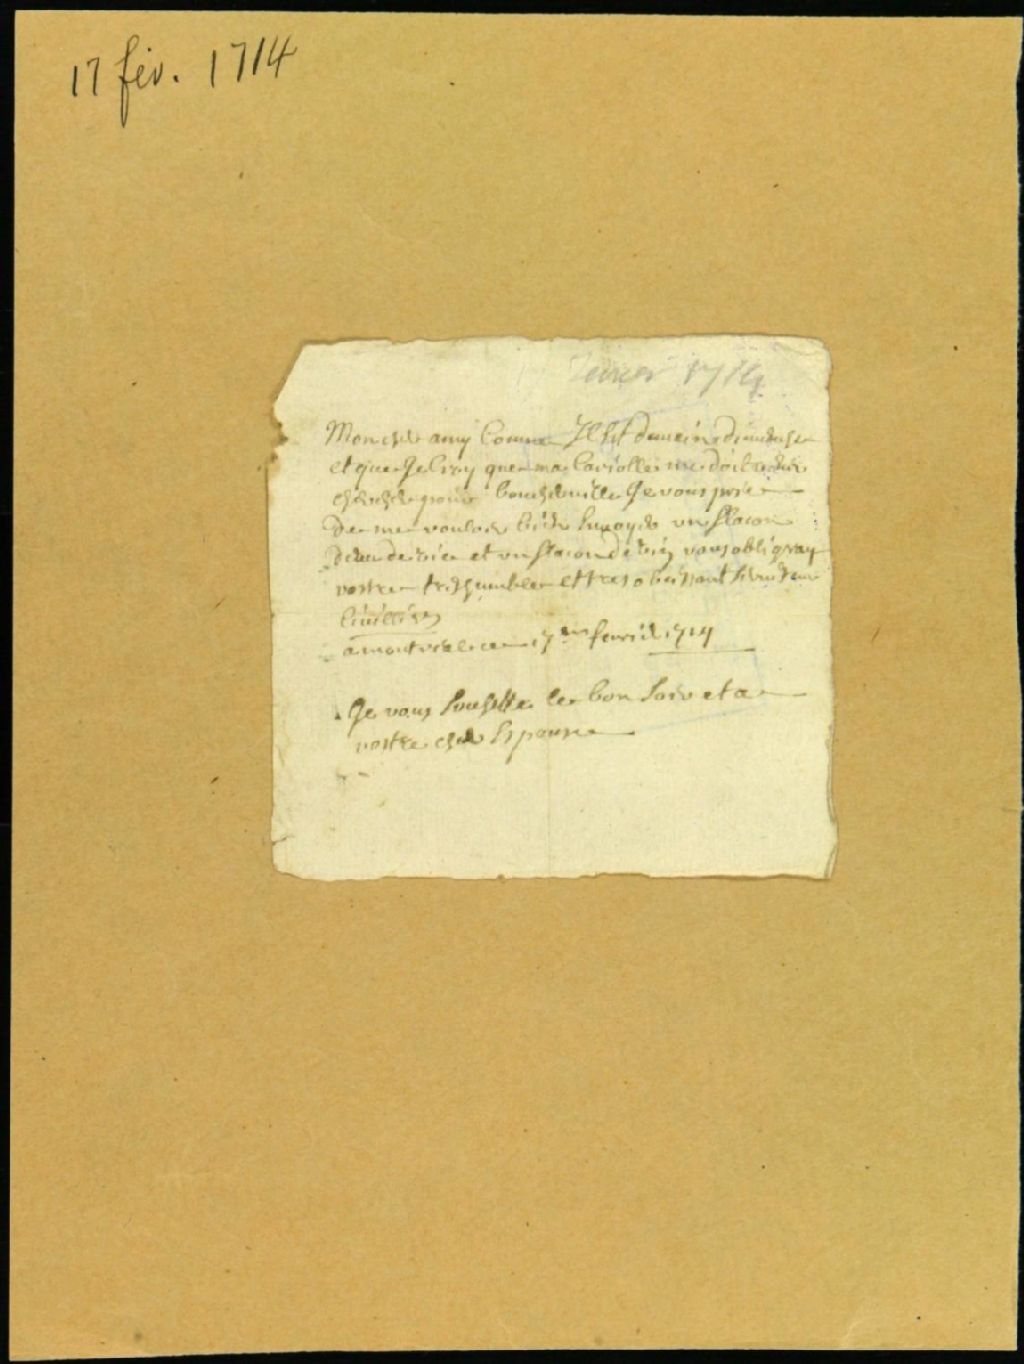 17 fév. 1714
fevrier 1714
Mon cher amy Comme Il est demain dimanche
et que Je Croy que ma Cariolle me doit
cherche pour boucherville Je vous prie
De me vouloir bien Envoyer un flacon
deau de vie et un flacon de vous obligeray
vostre tres humble et tres obeissant serviteur
a montreal ce 17me fevrier 1714
Je vous souhette le bon soir et a
vostre chere Espouse